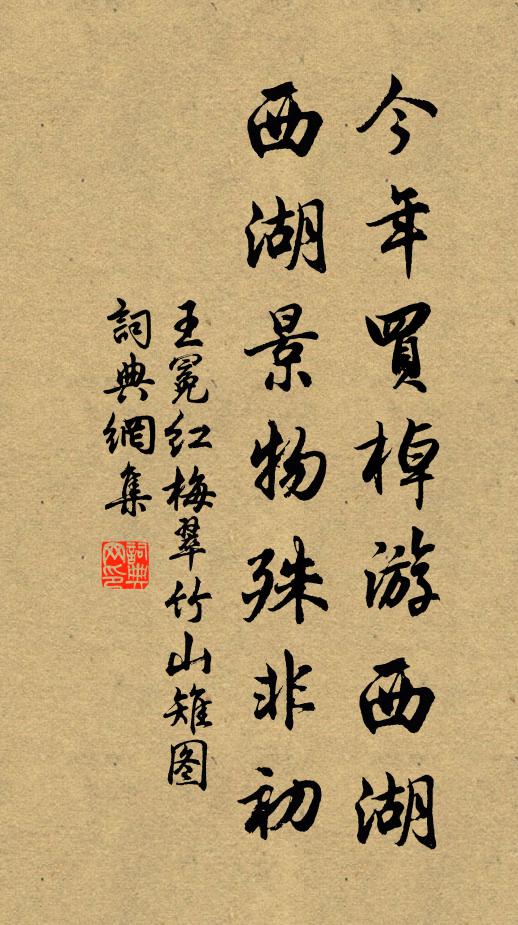 今年買棹游西湖
西湖景物殊非初
王冕红梅翠竹山雉图
詞典網集
詞典网印